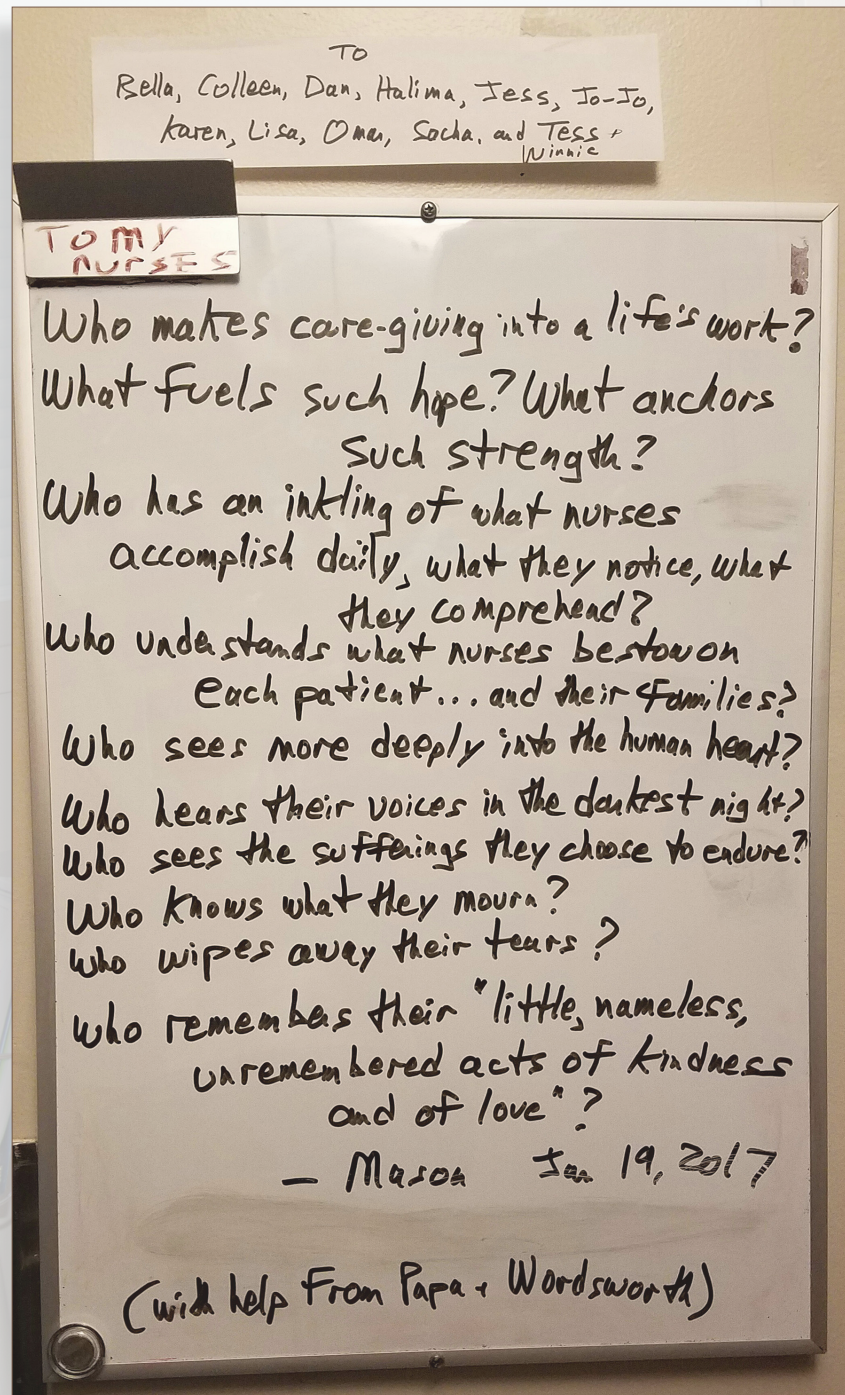 TO
Bella, Colleen, Dan, Halima, Jess, Jo-Jo,
Karen, Lisa, Omar, Sacha, and Tess +
Winnie
TO MY
NURSES
Who makes care-giving into a life's work?
What fuels such hope? What anchors
such strength?
Who has an inkling of what nurses
accomplish daily, what they notice, what
they comprehend?
Who understands what nurses bestow on
each patient... and their families?
Who sees more deeply into the human heart?
Who hears their voices in the darkest night?
Who sees the sufferings they choose to endure?
Who knows what they mourn?
Who wipes away their tears?
Who remembers their "little, nameless,
unremembered acts of kindness
and of love"?
— Mason Jan 19, 2017
(with help from Papa + Wordsworth)